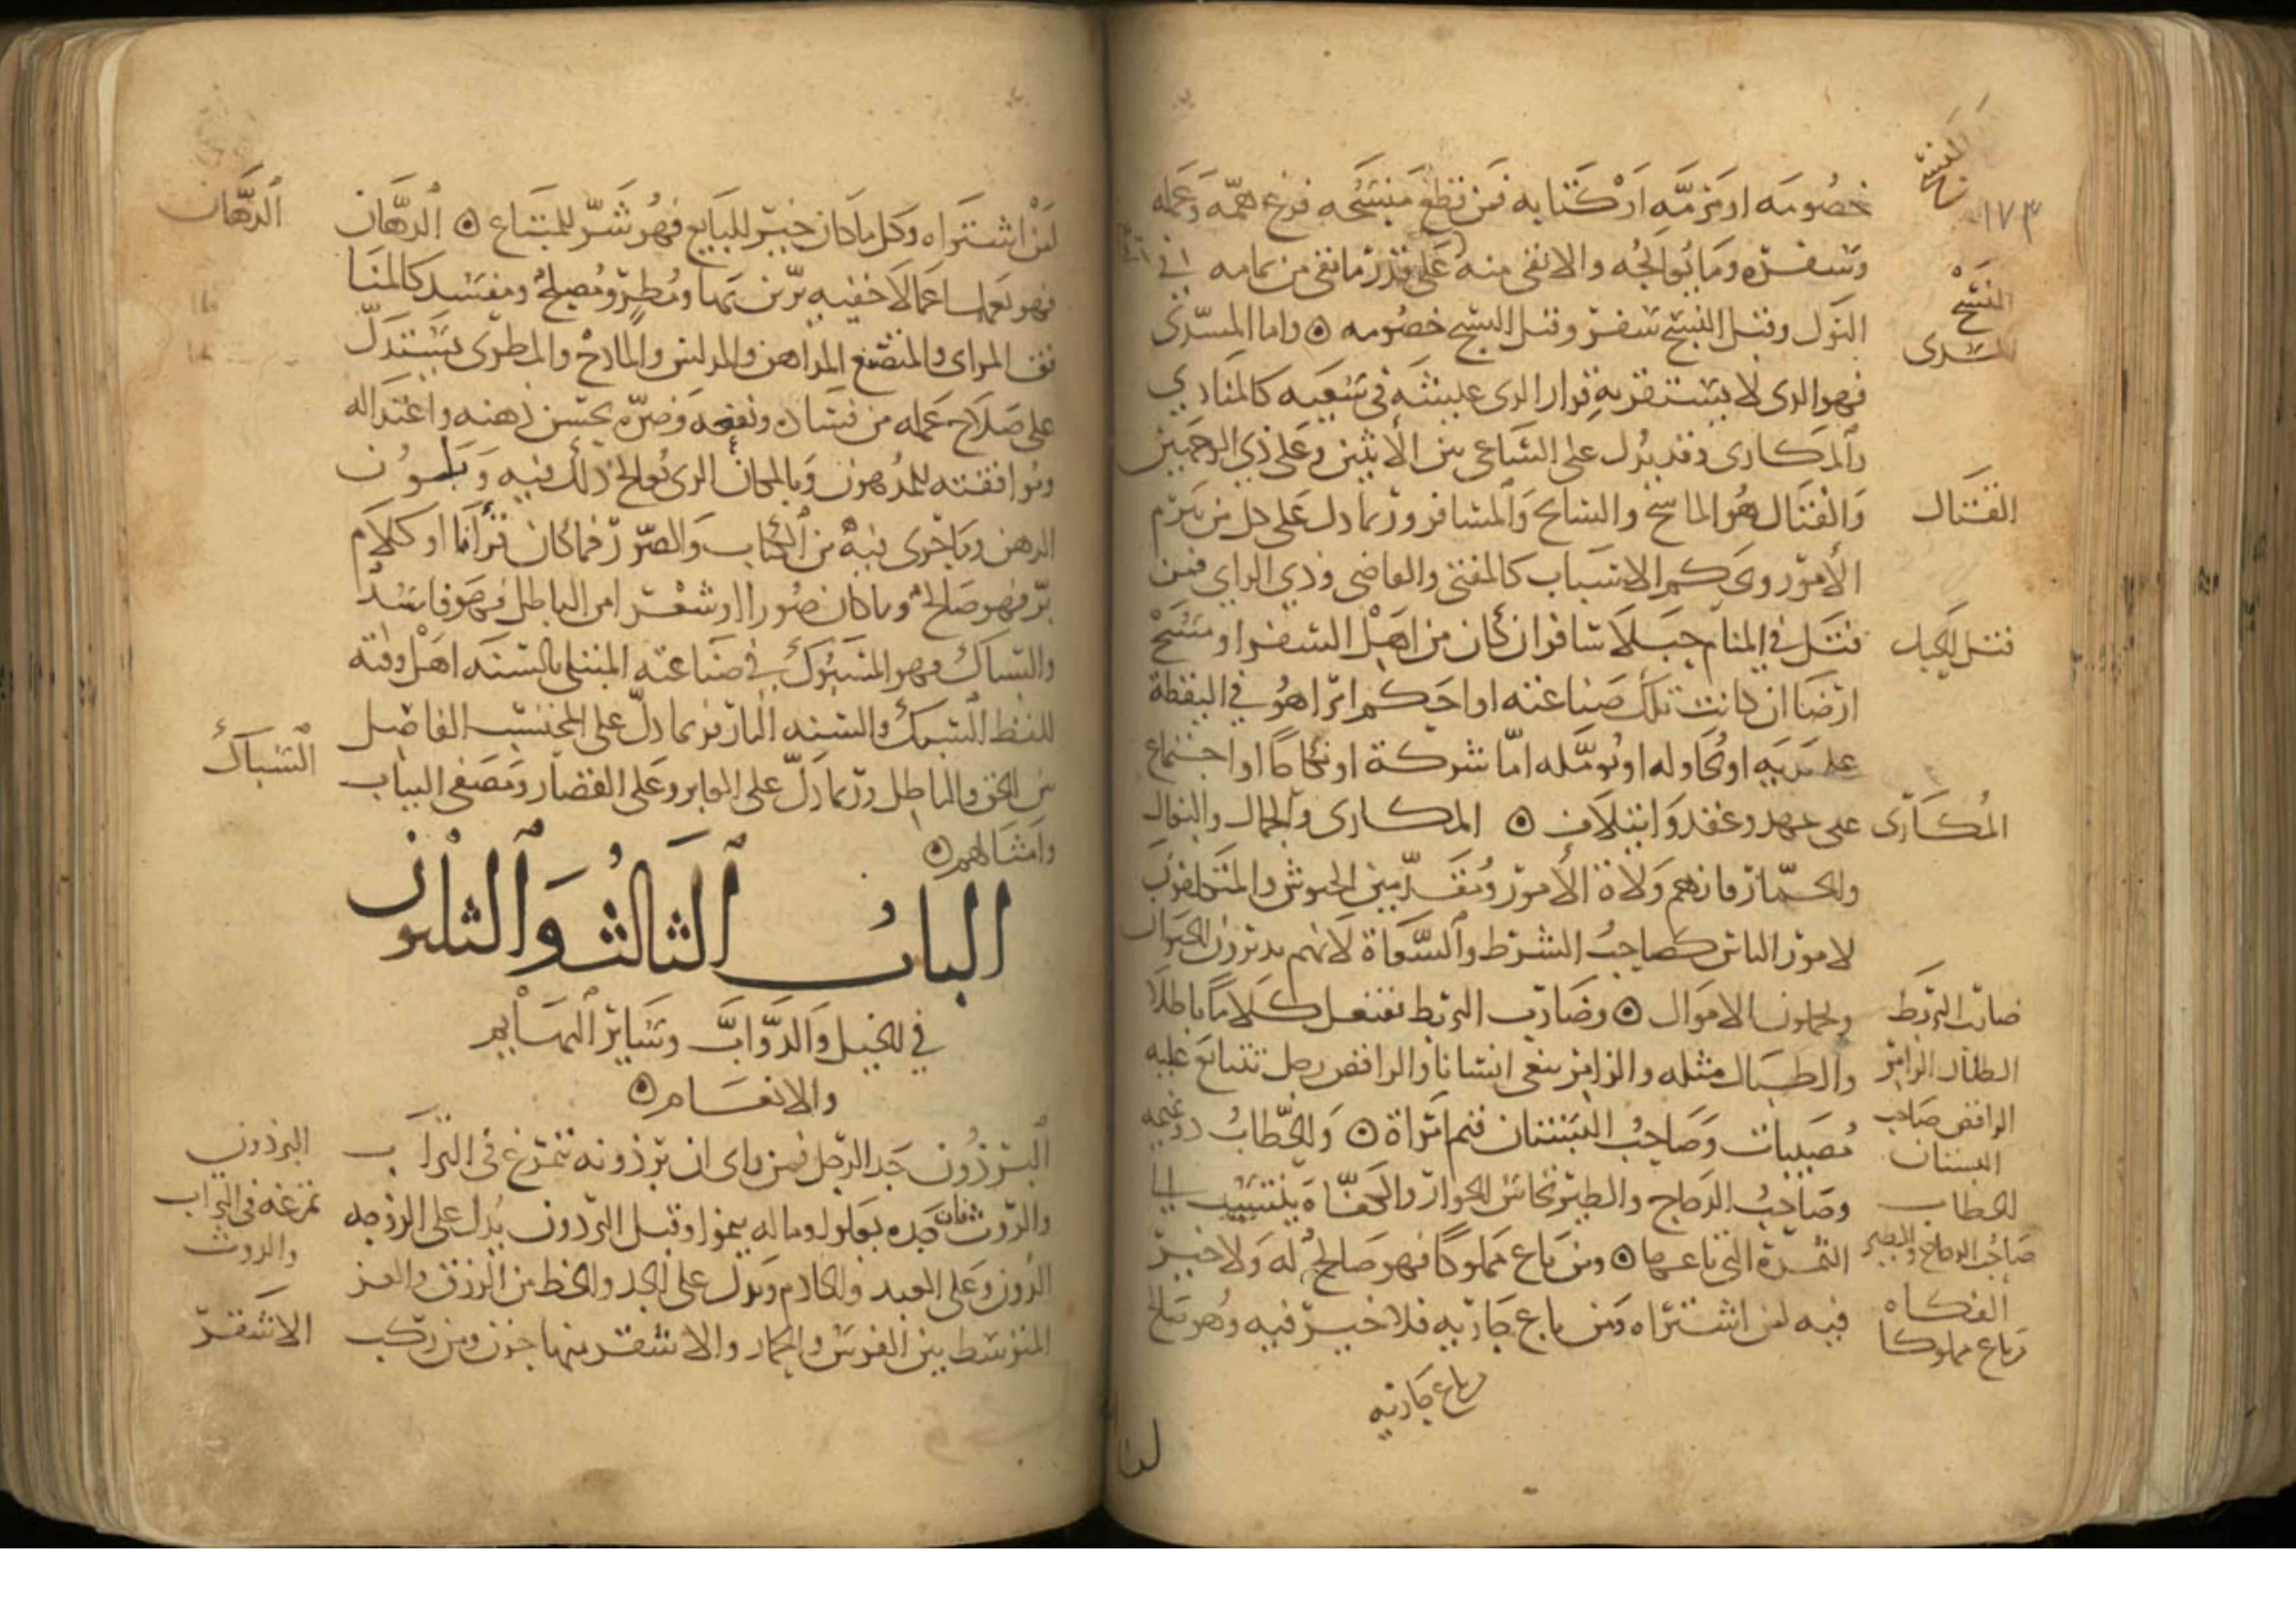 ١٧٣
خصومه او مزمه او كتابه فمن قطع منسجه فرغ همه وعمله
وسفره وما يعالجه والا بقى منه على قدر ما بقى من تمامه في
النول وفتل النسج سفر وفتل النسج خصومه ۞ واما المسدى
النسج
المسدى
فهو الذى لا يستقر به قرار الذى عيشه فى سعيه كالمنادي
والمكارى وقد يدل على الساعى بين الاثنين وعلى ذي الوجهين
والفتال هو الماسح والسايح والمسافر وربما دل على كل من يبرم
الفتال
الامور ويحكم الاسباب كالمفتى والقاضى وذي الراي فمن
فتل في المنام حبلا سافر ان كان من اهل السفر او مسح
فتل الحبل
ارضا ان كانت تلك صناعته او احكم امرا هو في اليقظة
على يديه او يحاوله او يومله اما شركة او نكاحا او اجتماع
على عهد وعقد وايتلاف ۞ المكارى والجمال والبغال
المكارى
والحمار فانهم ولاة الامور ومقدمين الجيوش والمتكلفون
لامور الناس كصاحب الشرط والسعاة لانهم يدبرون الحيوان
ويحملون الاموال ۞ وضارب البربط يفتعل كلاما باطلا
ضارب البربط
والطبال مثله والزامر ينعى انسانا والراقص رجل تتتابع عليه
الطبال الزامر
مصيبات وصاحب البستان قيم امراة ۞ والحطاب ذو نميمه
الراقص صاحب
البستان
وصاحب الدجاج والطير نخاس الجوار والفكاه ينتسب الى
الحطاب
الثمرة التى باعها ۞ ومن باع مملوكا فهو صالح له ولا خير
صاحب الدجاج والطير
فيه لمن اشتراه ومن باع جاريه فلا خير فيه وهو صالح
الفكاه
وباع مملوكا
وباع جاريه
لمن
لمن اشتراه وكل ما كان خير للبايع فهو شر للمبتاع ۞ الدهان
الدهان
فهو يعمل اعمالا خفيه يزين بها ومطر ومصلح ومفسد كالمنا
فق المراى والمتصنع المداهن والمدلس والمادح والمطرى يستدل
على صلاح عمله من فساده ونفعه وضره بحسن دهنه واعتداله
وموافقته للمدهون وبالمكان الذى يعالج ذلك فيه وبلون
الدهن وما جرى فيه من الكتاب والصور فما كان قرانا او كلام
بر فهو صالح وما كان صورا او شعر امر الباطل فهو فاسد
والسباك فهو المسبوك في صناعته المبتلى بالسنه اهل وقته
للفظ السبك والسنه النار فربما دل على المحتسب الفاصل
السباك
بين الحق والباطل وربما دل على العابر وعلى القصار ومصفى الثياب
وامثالهم ۞
الباب الثالث والثلثون
في الخيل والدواب وساير البهايم
والانعام ۞
البرذون جد الرجل فمن راى ان برذونه تمرغ فى التراب
البرذون
والروث فان جده يعلو وماله ينمو وقيل البرذون يدل على الزوجه
تمرغه فى التراب
والروث
الدون وعلى العبد والخادم ويدل على الجد والحظ من الرزق والعز
المتوسط بين الفرس والحمار والاشقر منها حزن ومن ركب
الاشقر